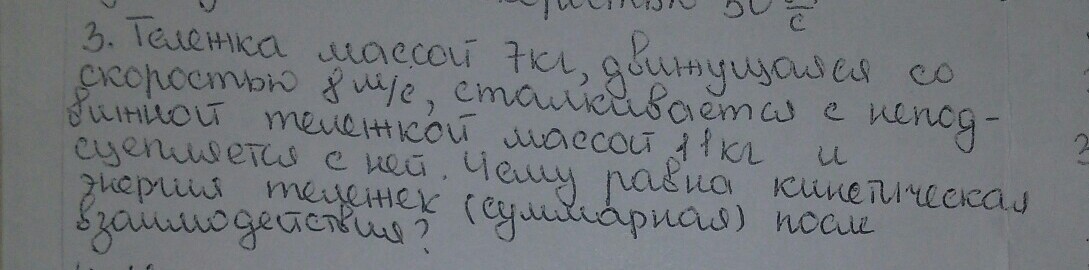 3. Тележка массой 7кг, движущаяся со
скоростью 8 м/с, сталкивается с непод-
вижной тележкой массой 11кг и
сцепляется с ней. Чему равна кинетическая
энергия тележек (суммарная) после
взаимодействия?